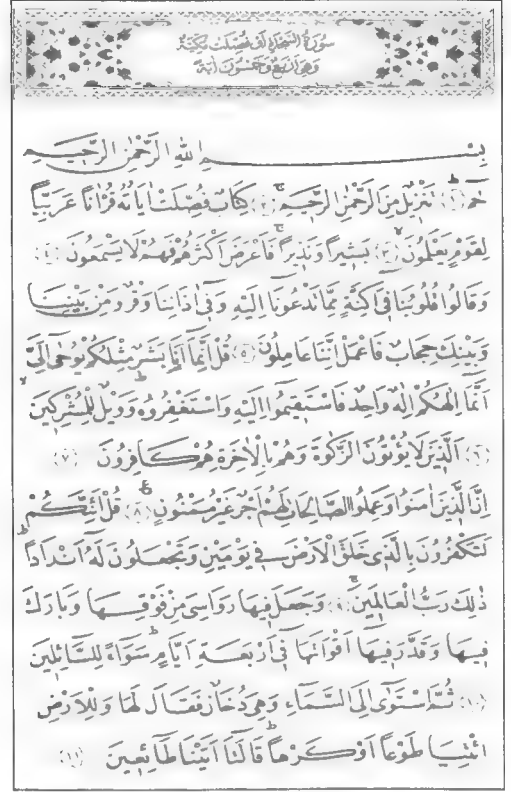 سُورَةُ السَّجْدَةِ لَدُ فُصِّلَتْ مَكِّيَّةٌ
وَهِيَ أَرْبَعٌ وَخَمْسُونَ اٰيَةً
بِسْمِ اللّٰهِ الرَّحْمٰنِ الرَّحِيمِ
حٰمٓ ﴿١﴾ تَنْزِيلٌ مِنَ الرَّحْمٰنِ الرَّحِيمِ ﴿٢﴾ كِتَابٌ فُصِّلَتْ اٰيَاتُهُ قُرْاٰنًا عَرَبِيًّا
لِقَوْمٍ يَعْلَمُونَ ﴿٣﴾ بَشِيرًا وَنَذِيرًا فَاَعْرَضَ اَكْثَرُهُمْ فَهُمْ لَا يَسْمَعُونَ ﴿٤﴾
وَقَالُوا قُلُوبُنَا فِي اَكِنَّةٍ مِمَّا تَدْعُونَا اِلَيْهِ وَفِي اٰذَانِنَا وَقْرٌ وَمِنْ بَيْنِنَا
وَبَيْنِكَ حِجَابٌ فَاعْمَلْ اِنَّنَا عَامِلُونَ ﴿٥﴾ قُلْ اِنَّمَا اَنَا بَشَرٌ مِثْلُكُمْ يُوحٰى اِلَيَّ
اَنَّمَا اِلٰهُكُمْ اِلٰهٌ وَاحِدٌ فَاسْتَقِيمُوا اِلَيْهِ وَاسْتَغْفِرُوهُ وَوَيْلٌ لِلْمُشْرِكِينَ
﴿٦﴾ اَلَّذِينَ لَا يُؤْتُونَ الزَّكٰوةَ وَهُمْ بِالْاٰخِرَةِ هُمْ كَافِرُونَ ﴿٧﴾
اِنَّ الَّذِينَ اٰمَنُوا وَعَمِلُوا الصَّالِحَاتِ لَهُمْ اَجْرٌ غَيْرُ مَمْنُونٍ ﴿٨﴾ قُلْ اَئِنَّكُمْ
لَتَكْفُرُونَ بِالَّذِي خَلَقَ الْاَرْضَ فِي يَوْمَيْنِ وَتَجْعَلُونَ لَهُ اَنْدَادًا
ذٰلِكَ رَبُّ الْعَالَمِينَ ﴿٩﴾ وَجَعَلَ فِيهَا رَوَاسِيَ مِنْ فَوْقِهَا وَبَارَكَ
فِيهَا وَقَدَّرَ فِيهَا اَقْوَاتَهَا فِي اَرْبَعَةِ اَيَّامٍ سَوَاءً لِلسَّائِلِينَ
﴿١٠﴾ ثُمَّ اسْتَوٰى اِلَى السَّمَاءِ وَهِيَ دُخَانٌ فَقَالَ لَهَا وَلِلْاَرْضِ
ائْتِيَا طَوْعًا اَوْ كَرْهًا قَالَتَا اَتَيْنَا طَائِعِينَ ﴿١١﴾